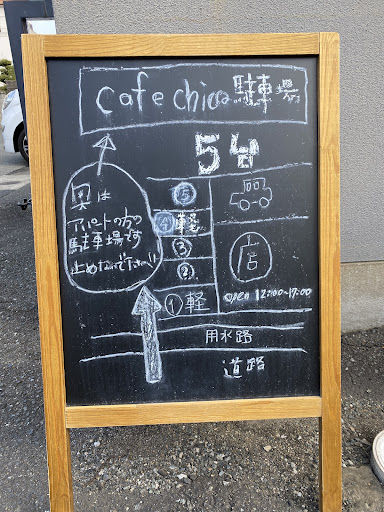 cafe chica駐車場
5台
奥は
アパートの方の
駐車場です
止めないで下さい!!
⑤
④ 軽
③
②
① 軽
店
open 12:00~17:00
用水路
道路